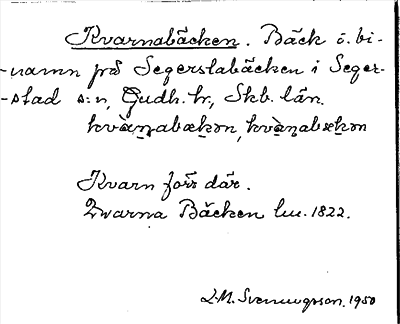 Kvarnabäcken. Bäck o. bi-
-namn på Segerstabäcken i Seger-
-stad s:n, Gudh. hr, Skb. län.
kvὰṇabækən, kvὰṇabækən
Kvarn förr där.
Qvarna Bäcken lm. 1822.
L.M. Svenungsson. 1950